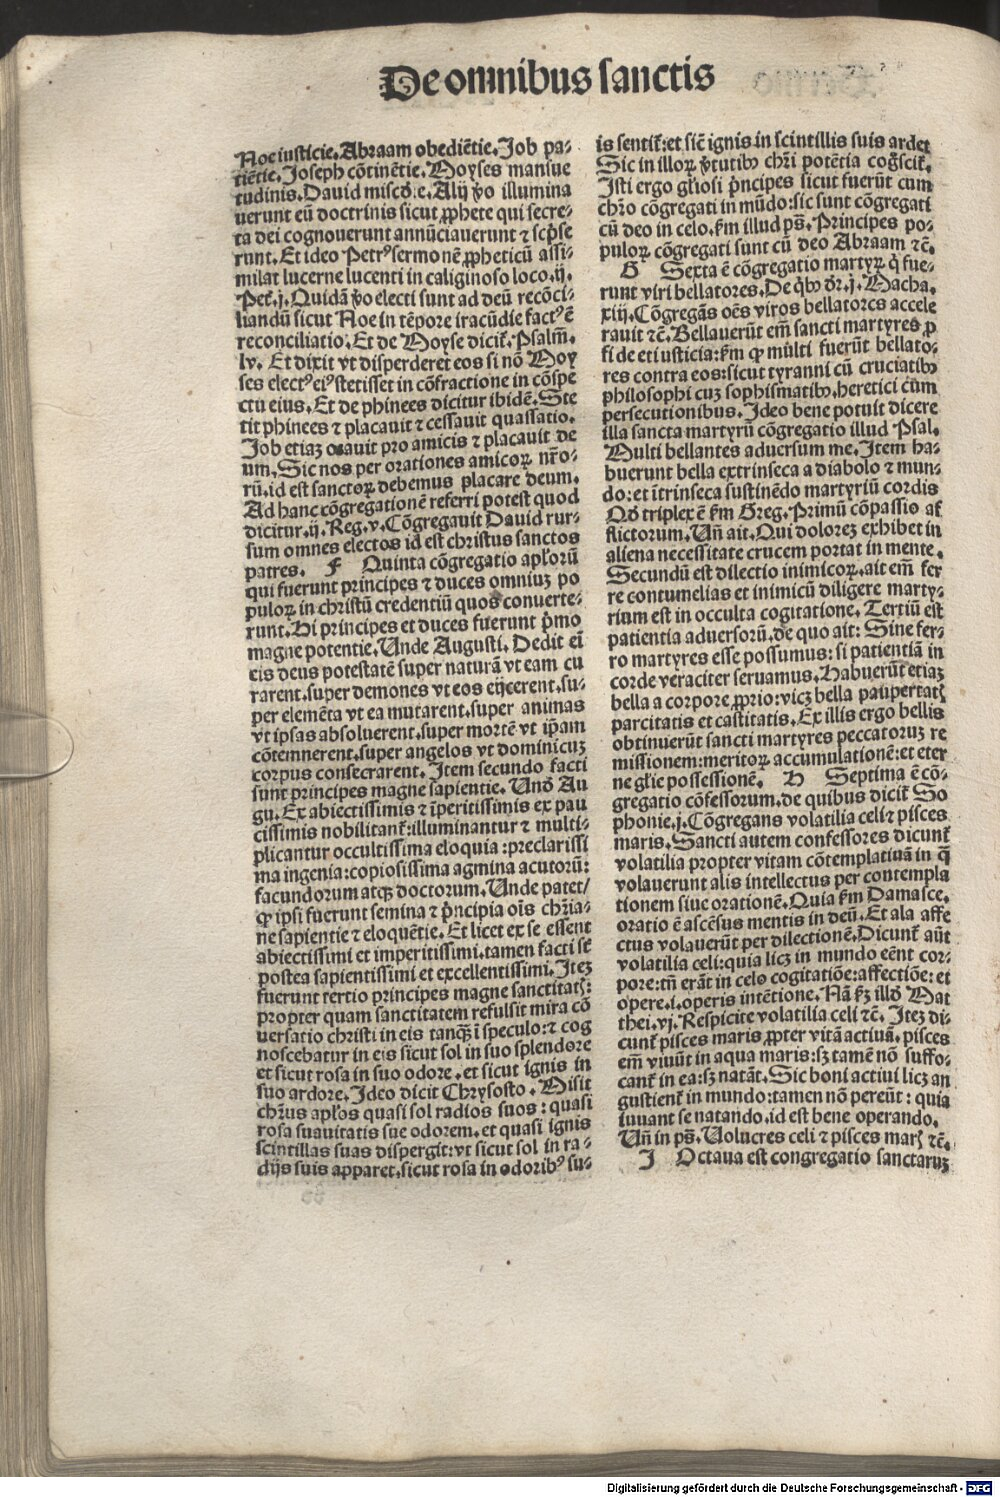 De omnibus sanctis
Noe iusticie. Abraam obediētie. Job pa-
tiētie. Joseph cōtinētie. Moyses mansue
tudinis. Dauid miscd̕ie. Alij ꝟo illumina
uerunt eū doctrinis sicut ꝓphete qui secre-
ta dei cognouerunt annūciauerunt ⁊ scp̄se
runt. Et ideo Petrꝰ sermonē ꝓpheticū assi-
milat lucerne lucenti in caliginoso loco. ij.
Pet̄. j. Quidā ꝟo electi sunt ad deū recōci-
liandū sicut Noe in tēpore iracūdie factꝰ ē
reconciliatio. Et de Moyse dicit̄. Psalm̄.
lv. Et dixit vt disperderet eos si nō Moy
ses electꝰ eiꝰ stetisset in cōfractione in cōspe
ctu eius. Et de phinees dicitur ibidē. Ste
tit phinees ⁊ placauit ⁊ cessauit quassatio.
Job etiaz orauit pro amicis ⁊ placauit de
um. Sic nos per orationes amicoꝝ nr̄o-
rū. id est sanctoꝝ debemus placare deum.
Ad hanc cōgregationē referri potest quod
dicitur. ij. Reg. v. Cōgregauit Dauid rur-
sum omnes electos id est christus sanctos
patres. F Quinta cōgregatio apl̄orū
qui fuerunt principes ⁊ duces omniuz po
puloꝝ in christū credentiū quos conuerte-
runt. Hi principes et duces fuerunt p̄mo
magne potentie. Unde Augusti. Dedit ei̅
eis deus potestatē super naturā vt eam cu
rarent. super demones vt eos eijcerent. su-
per elemēta vt ea mutarent. super animas
vt ipsas absoluerent. super mortē vt ip̄am
cōtemnerent. super angelos vt dominicuz
corpus consecrarent. Item secundo facti
sunt principes magne sapientie. Unď Au
gu. Ex abiectissimis ⁊ īperitissimis ex pau
cissimis nobilitant̄: illuminantur ⁊ multi-
plicantur occultissima eloquia: preclarissi
ma ingenia: copiosissima agmina acutorū:
facundorum atqꝫ doctorum. Unde patet/
ꝙ ipsi fuerunt semina ⁊ p̄ncipia oīs chr̄ia-
ne sapientie ⁊ eloquētie. Et licet ex se essent
abiectissimi et imperitissimi. tamen facti st̄
postea sapientissimi et excellentissimi. Itez
fuerunt tertio principes magne sanctitatꝭ:
propter quam sanctitatem refulsit mira cō
uersatio christi in eis tanqꝫ̄ ī speculo: ⁊ cog
noscebatur in eis sicut sol in suo splendore
et sicut rosa in suo odore. et sicut ignis in
suo ardore. Ideo dicit Chrysosto. Misit
chr̄us apl̄os quasi sol radios suos: quasi
rosa suauitatis sue odorem. et quasi ignis
scintillas suas dispergit: vt sicut sol in ra-
dijs suis apparet. sicut rosa in odoribꝰ su-
is sentit̄: et sic̄ ignis in scintillis suis ardet
Sic in illoꝝ ꝟtutibꝫ chr̄i potētia cog̕scit̄.
Isti ergo gl̄iosi p̄ncipes sicut fuerūt cum
chr̄o cōgregati in mūdo: sic sunt cōgregati
cū deo in celo. ẜm illud ps̄. Principes po-
puloꝝ cōgregati sunt cū deo Abraam ⁊c̄.
G Sexta ē cōgregatio martyꝝ q̇ fue-
runt viri bellatores. De q̇bꝫ dr̄. j. Macha.
xiij. Cōgregās oēs viros bellatores accele
rauit ⁊c̄. Bellauerūt em̄ sancti martyres ꝓ
fi de et iusticia: ẜm ꝙ multi fuerūt bellato-
res contra eos: sicut tyranni cū cruciatibꝫ
philosophi cuz sophismatibꝫ. heretici cum
persecutionibus. Ideo bene potuit dicere
illa sancta martyrū cōgregatio illud Psal.
Multi bellantes aduersum me. Item ha-
buerunt bella extrinseca a diabolo ⁊ mun-
do: et ītrinseca sustinēdo martyriū cordis
Qď triplex ē ẜm Greg. Primū cōpassio af
flictorum. Un̄ ait. Qui dolorez exhibet in
aliena necessitate crucem portat in mente.
Secundū est dilectio inimicoꝝ. ait em̄ fer
re contumelias et inimicū diligere marty-
rium est in occulta cogitatione. Tertiū est
patientia aduersorū. de quo ait: Sine fer-
ro martyres esse possumus: si patientiā in
corde veraciter seruamus. Habuerūt etiaz
bella a corpore ꝓprio: vicꝫ bella paupertatꝭ
parcitatis et castitatis. Ex illis ergo bellis
obtinuerūt sancti martyres peccatoruz re
missionem: meritoꝝ accumulationē: et eter
ne gl̄ie possessionē. H Septima ē cō-
gregatio cōfessorum. de quibus dicit̄ So
phonie. j. Cōgregans volatilia celi ⁊ pisces
maris. Sancti autem confessores dicunt̄
volatilia propter vitam cōtemplatiuā in q̄
volauerunt alis intellectus per contempla
tionem siue orationē. Quia ẜm Damasce.
oratio ē ascēsus mentis in deū. Et ala affe
ctus volauerūt per dilectionē. Dicunt̄ aūt
volatilia celi: quia licꝫ in mundo eēnt cor-
pore: tn̄ erāt in celo cogitatiōe: affectiōe: et
opere. i. operis intētione. Nā ẜꝫ illď Mat
thei. vj. Respicite volatilia celi ⁊c̄. Itez di-
cunt̄ pisces maris ꝓpter vitā actiuā. pisces
em̄ viuūt in aqua maris: sꝫ tamē nō suffo-
cant̄ in ea: sꝫ natāt. Sic boni actiui licꝫ an
gustient̄ in mundo: tamen nō pereūt: quia
iuuant se natando. id est bene operando.
Un̄ in ps̄. Uolucres celi ⁊ pisces marꝭ ⁊c̄.
I Octaua est congregatio sanctaruz
Digitalisierung gefördert durch die Deutsche Forschungsgemeinschaft - DFG